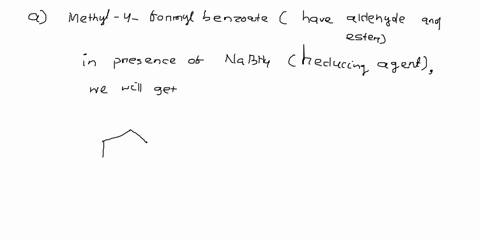 a) Methyl-4-formyl benzoate ( have aldehyde and
ester)
in presence of NaBH4 (Reducing agent),
we will get